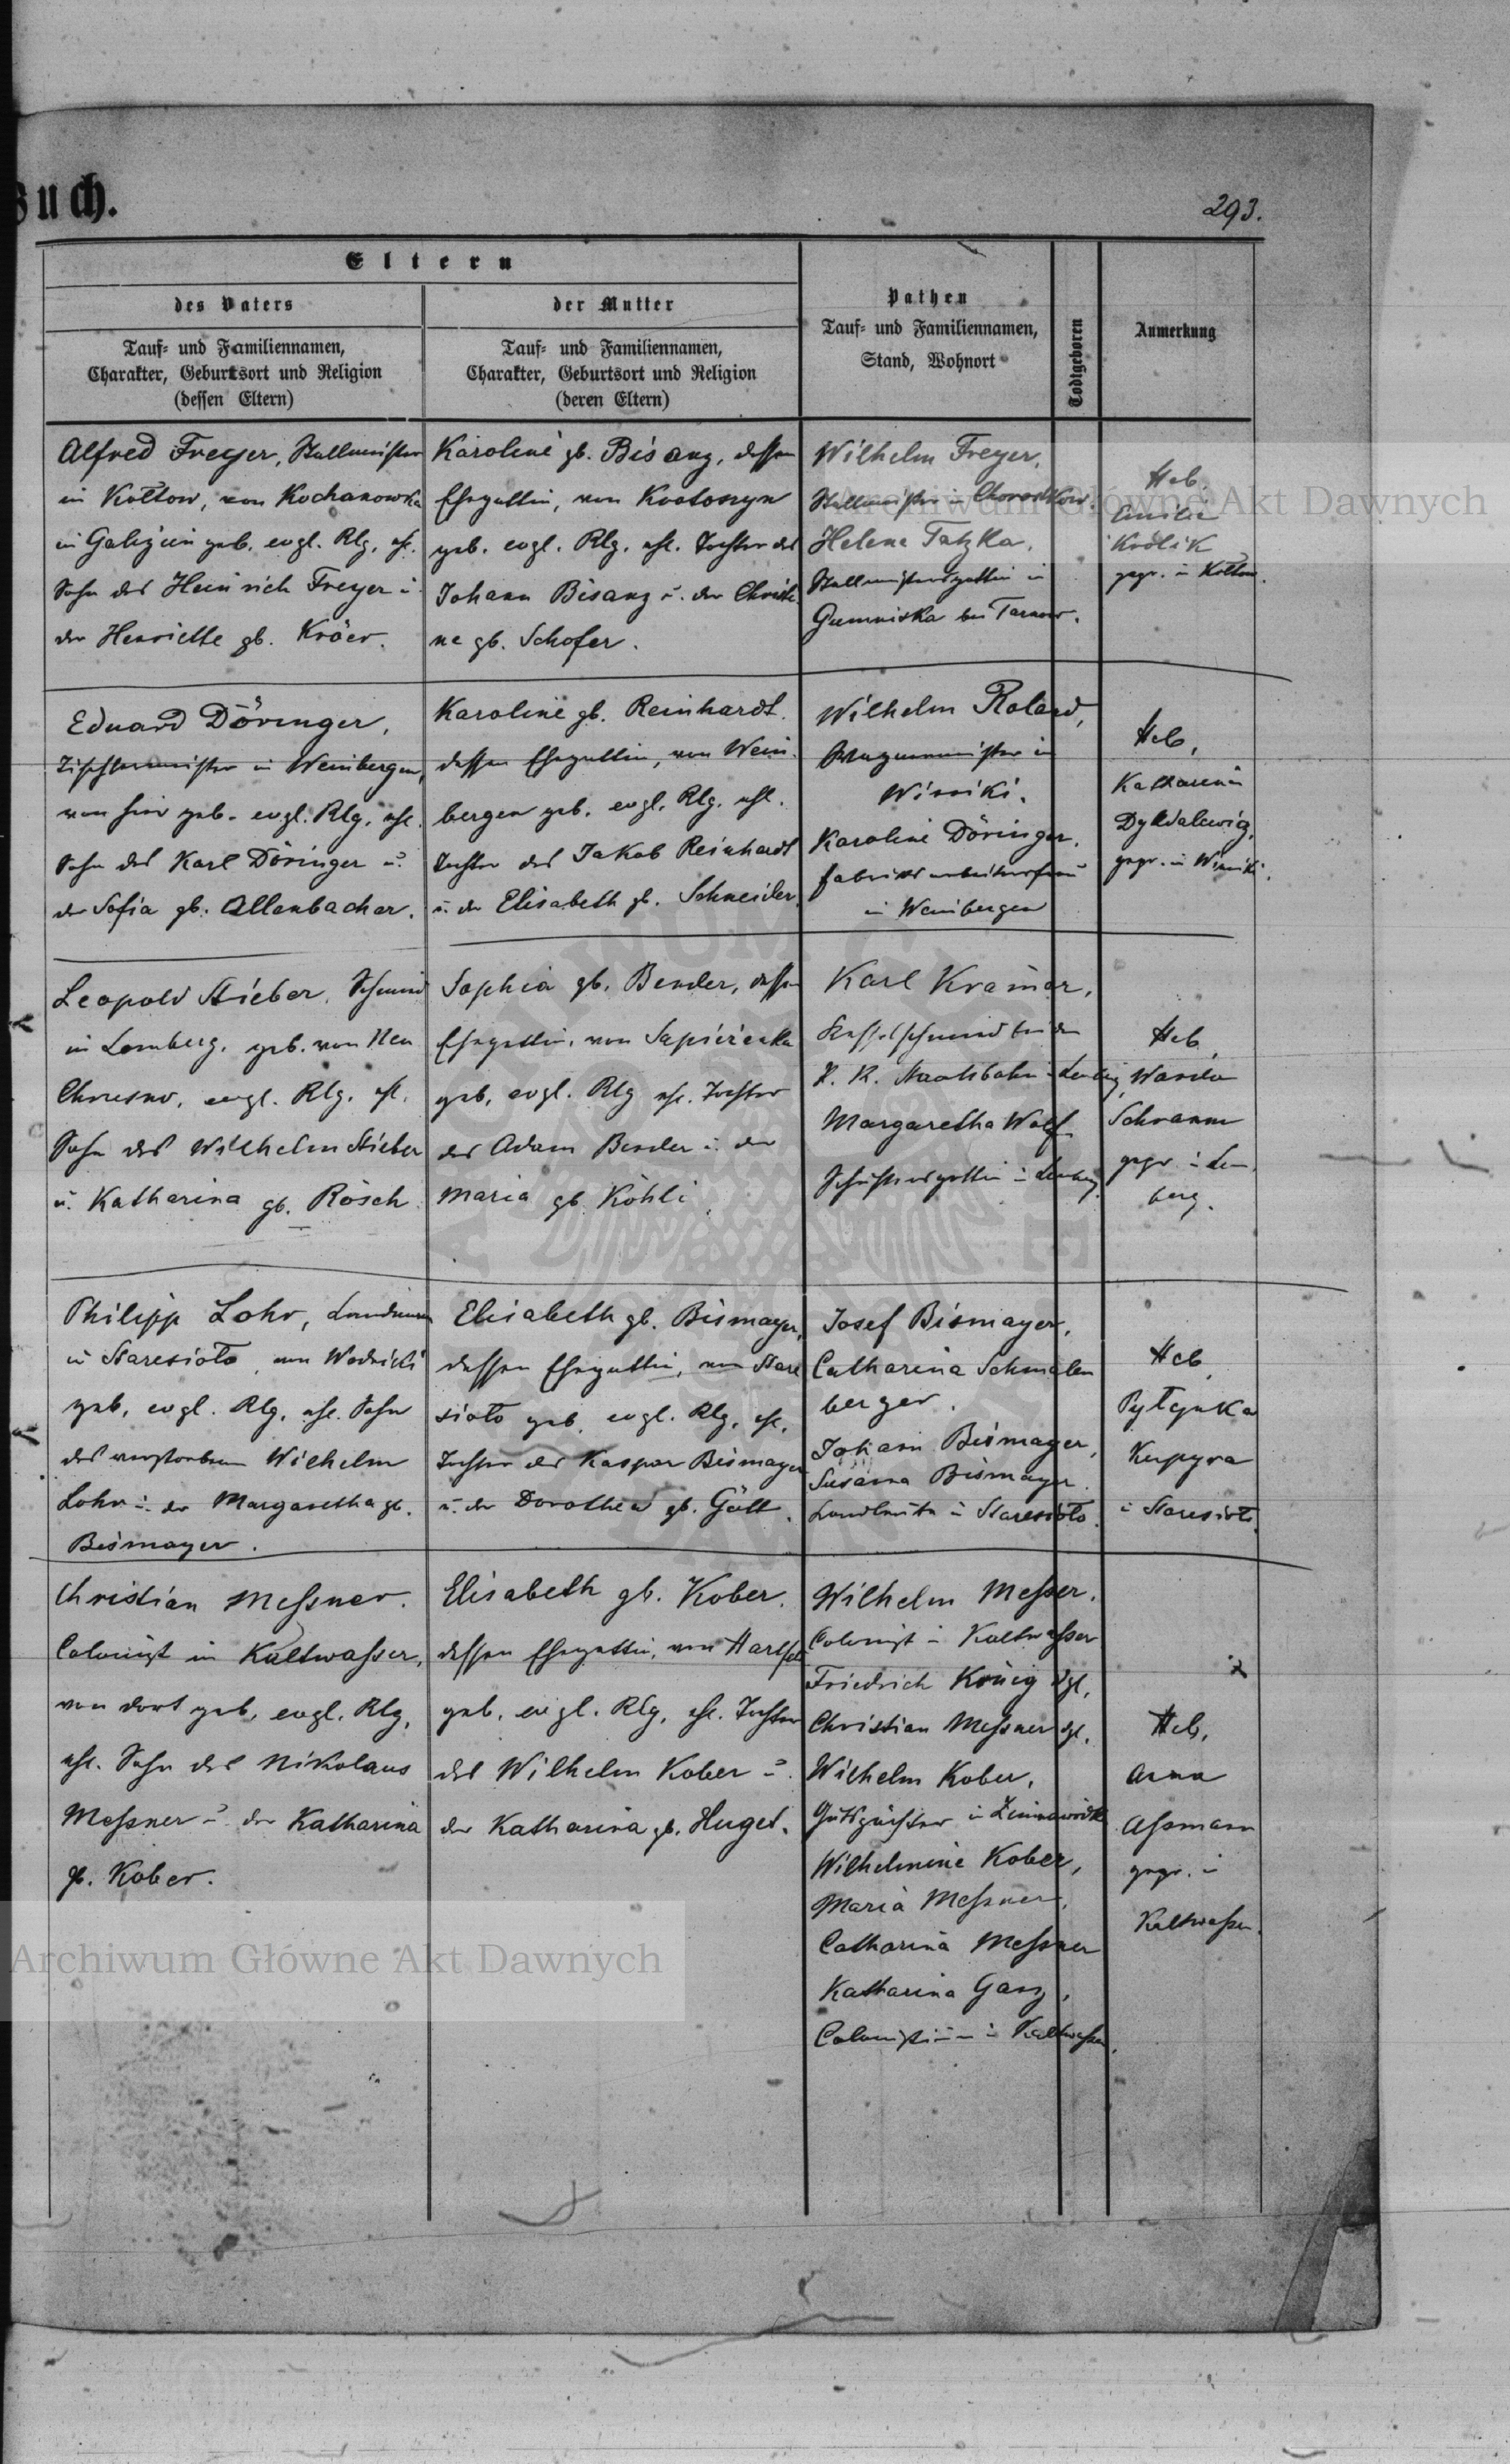 Buch.
293.
Eltern
des Vaters
der Mutter
Pathen
Tauf- und Familiennamen,
Stand, Wohnort
Todtgeboren
Anmerkung
Tauf- und Familiennamen,
Charakter, Geburtsort und Religion
(dessen Eltern)
Tauf- und Familiennamen,
Charakter, Geburtsort und Religion
(deren Eltern)
Alfred Freyer, Stallmeister
in Kołtow, von Kochanowka
in Galizien geb. evgl. Rlg, ehl.
Sohn des Heinrich Freyer u.
der Henriette gb. Kröer.
Karoline gb. Bisanz, dessen
Ehegattin, von
geb. evgl. Rlg. ehl. Tochter des
Johann Bisanz u. der Christi
ne gb. Schofer.
Wilhelm Freyer,
Stallmeister in Chorostkow.
Helena Tatzka,
Stallmeistersgattin in
Gumniska bei Tarnow.
Heb.
Emilie
Krolik
gepr. in Kołtow.
Eduard Döringer,
Tischlermeister in Weinbergen,
von hier geb. evgl. Rlg, ehl.
Sohn des Karl Döringer u.
der Sofia gb. Allenbacher.
Karoline gb. Reinhardt.
dessen Ehegattin, von Wein-
bergen geb. evgl. Rlg. ehl.
Tochter des Jakob Reinhardt
u. der Elisabeth gb. Schneider.
Wilhelm Roland,
in
Winiki.
Karoline Döringer,
Fabriksarbeitersfrau
in Weinbergen
Heb.
Katharina
gepr. in Winniki.
Leopold Stieber, Schmied
in Lemberg, geb. von Neu
Chrusno, evgl. Rlg. ehl.
Sohn des Wilhelm Stieber
u. Katharina gb. Rösch
Sophia gb. Bender, dessen
Ehegattin, von
geb, evgl. Rlg ehl. Tochter
des Adam Bender u. der
Maria gb Köhli.
Karl Kramer,
Kesselschmied bei der
K. K. Staatsbahn i Lemberg
Margaretha Wolf
Schustersgattin i Lemberg.
Heb.
Wanda
Schramm
gepr. i Lem-
berg.
Philipp Lohr, Landmann
in Staresioło, von Wodniki
geb, evgl. Rlg, ehl. Sohn
des verstorbenen Wilhelm
Lohr u. der Margaretha gb.
Bismayer.
Elisabeth gb. Bismayer,
dessen Ehegattin, von Stare
sioło geb. evgl. Rlg, ehl.
Tochter des Kaspar Bismayer
u. der Dorothea gb. Gött.
Josef Bismayer,
Catharina Schmalen
berger.
Johann Bismayer,
Susanna Bismayer
Landleute in Staresioło.
Heb.
Kupyra
i Staresioło.
Christian Meßner.
Colonist in Kaltwasser,
von dort geb, evgl. Rlg,
ehl. Sohn des Nikolaus
Meßner u. der Katharina
gb. Kober.
Elisabeth gb. Kober.
dessen Ehegattin, von Hartfeld
geb, evgl. Rlg, ehl. Tochter
des Wilhelm Kober u.
der Katharina gb. Huget.
Wilhelm Meßer.
Colonist i Kaltwasser
Friedrich König dgl.
Christian Meßner dgl.
Wilhelm Kober,
Gutspächter in Zimnawodka
Wilhelmine Kober,
Maria Meßner,
Catharina Meßner
Katharina Ganz,
Colonistinnen i Kaltwasser.
Heb.
Anna
Aßmann
gepr. i
Kaltwasser.
Archiwum Główne Akt Dawnych
Archiwum Główne Akt Dawnych